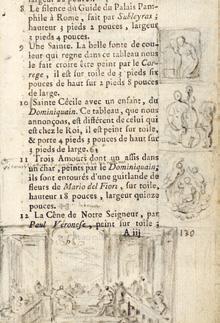 8 Le silence du Guide du Palais Pam-
phile à Rome, fait par Subleyras;
hauteur 3 pieds 2 pouces, largeur
3 pieds 4 pouces.
9 Une Sainte. La belle fonte de cou-
leur qui regne dans ce tableau nous
le fait croire être peint par le Cor-
rege, il est sur toile de 3 pieds six
pouces de haut sur 2 pieds 8 pouces
de large.
10 Sainte Cécile avec un enfant, du
Dominiquain. Ce tableau, que nous
annonçons, est différent de celui qui
est chez le Roi, il est peint sur toile,
& porte 4 pieds 3 pouces de haut sur
3 pieds de large. 6,
11 Trois Amours dont un assis dans
un char, peints par le Dominiquain;
ils sont entourés d'une guitlande de
fleurs de Mario del Fiori, sur toile,
hauteur 18 pouces, largeur quinze
pouces.
12 La Cêne de Notre Seigneur, par
Paul Véronese, peint sur toile;
A iij
130